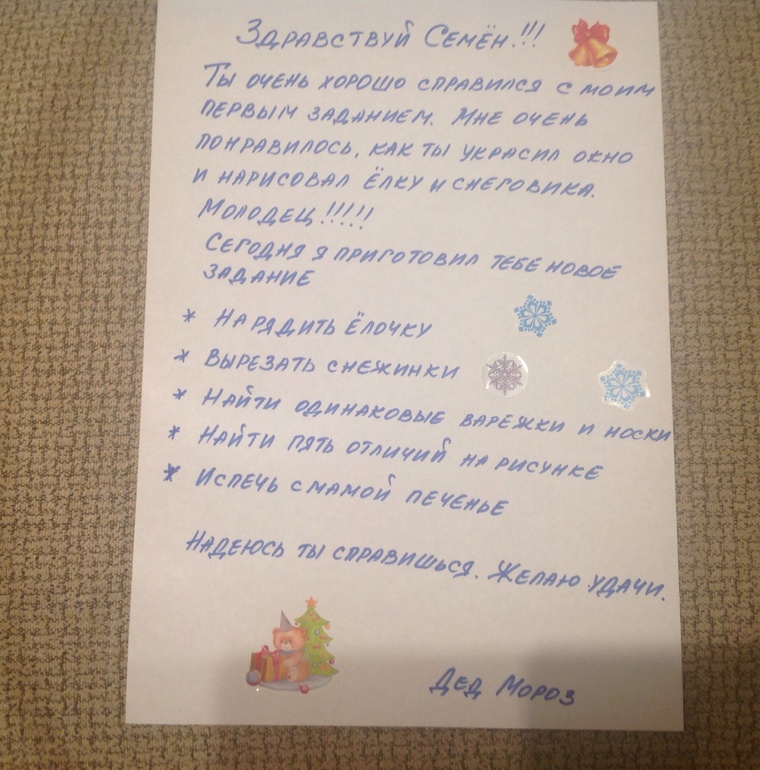 Здравствуй Семён!!!
Ты очень хорошо справился с моим
первым заданием. Мне очень
понравилось, как ты украсил окно
и нарисовал ёлку и снеговика.
Молодец!!!!!
Сегодня я приготовил тебе новое
задание
* Нарядить ёлочку
* Вырезать снежинки
* Найти одинаковые варежки и носки
* Найти пять отличий на рисунке
* Испечь с мамой печенье
Надеюсь ты справишься. Желаю удачи.
Дед Мороз